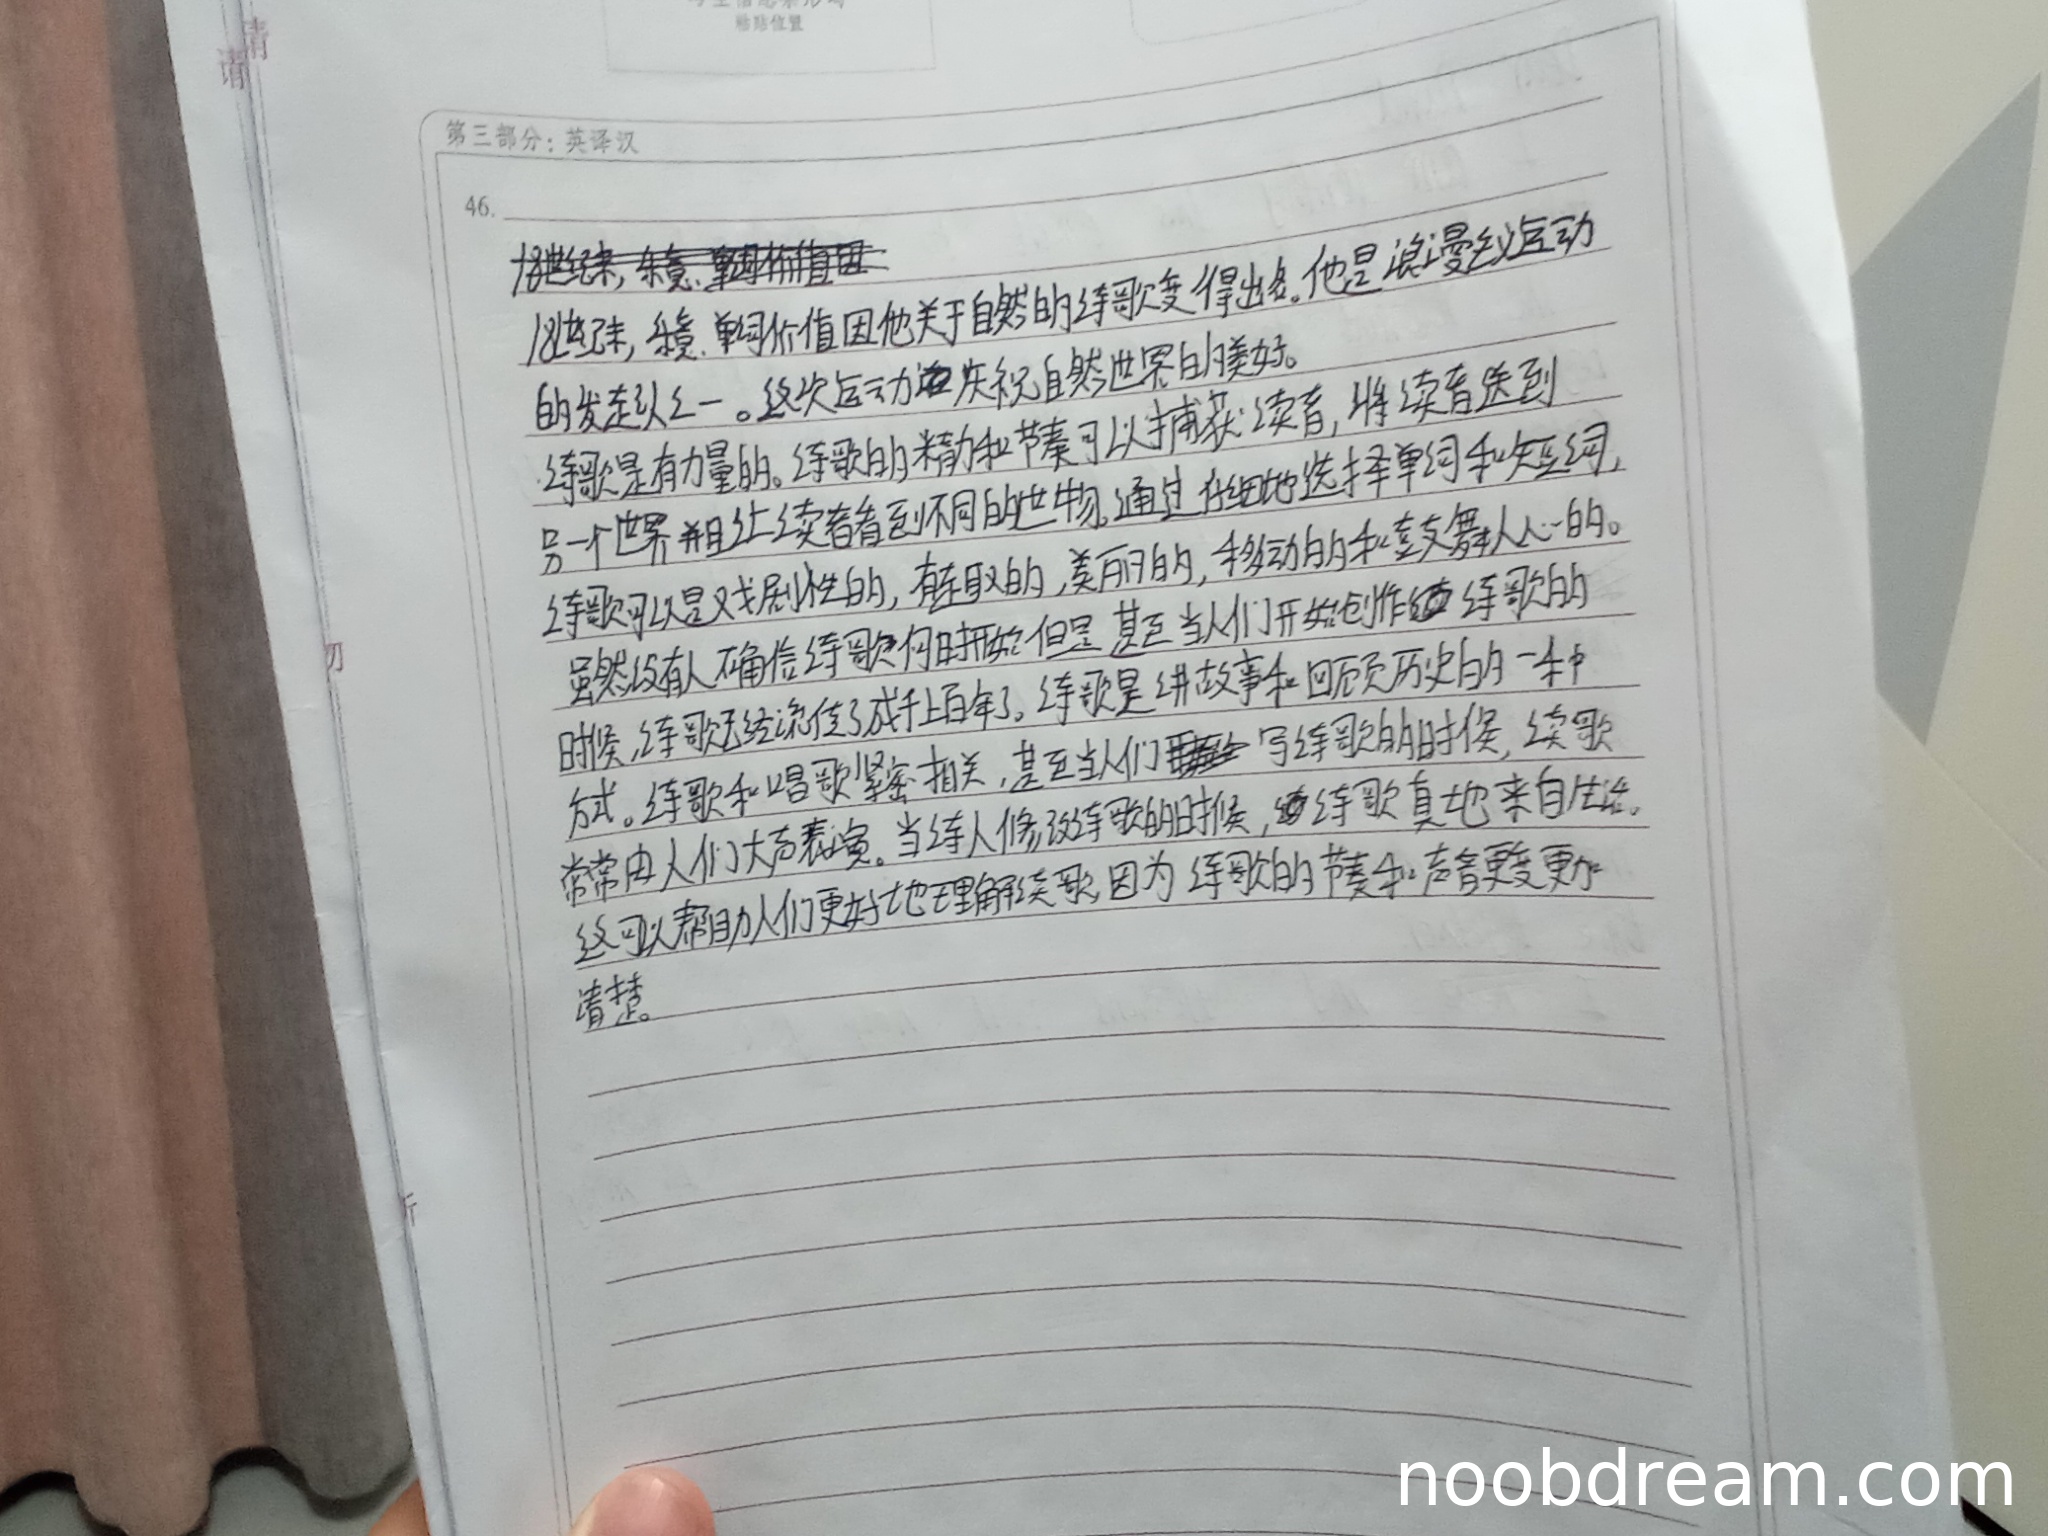 粘贴位置
请
请
第三部分：英译汉
46.
18世纪末，乐意、单词价值因他关于自然的诗歌变得出名。他是浪漫主义运动
的发起认之一。这次运动庆祝自然世界的美好。
诗歌是有力量的。诗歌的精力和节奏可以捕获读者，将读者送到
另一个世界并且让读者看到不同的世物。通过仔细地选择单词和短词，
诗歌可以是戏剧性的，有趣的，美丽的，移动的和鼓舞人心的。
虽然没有人确信诗歌何时开始但是甚至当人们开始创作诗歌的
时候，诗歌已经流传了成千上百年了。诗歌是讲故事和回顾历史的一种
方式。诗歌和唱歌紧密相关，甚至当人们写诗歌的时候，读歌
常常由人们大声表演。当诗人修改诗歌的时候，诗歌真地来自生活。
这可以帮助人们更好地理解读歌，因为诗歌的节奏和声音更变更加
清楚。
noobdream.com